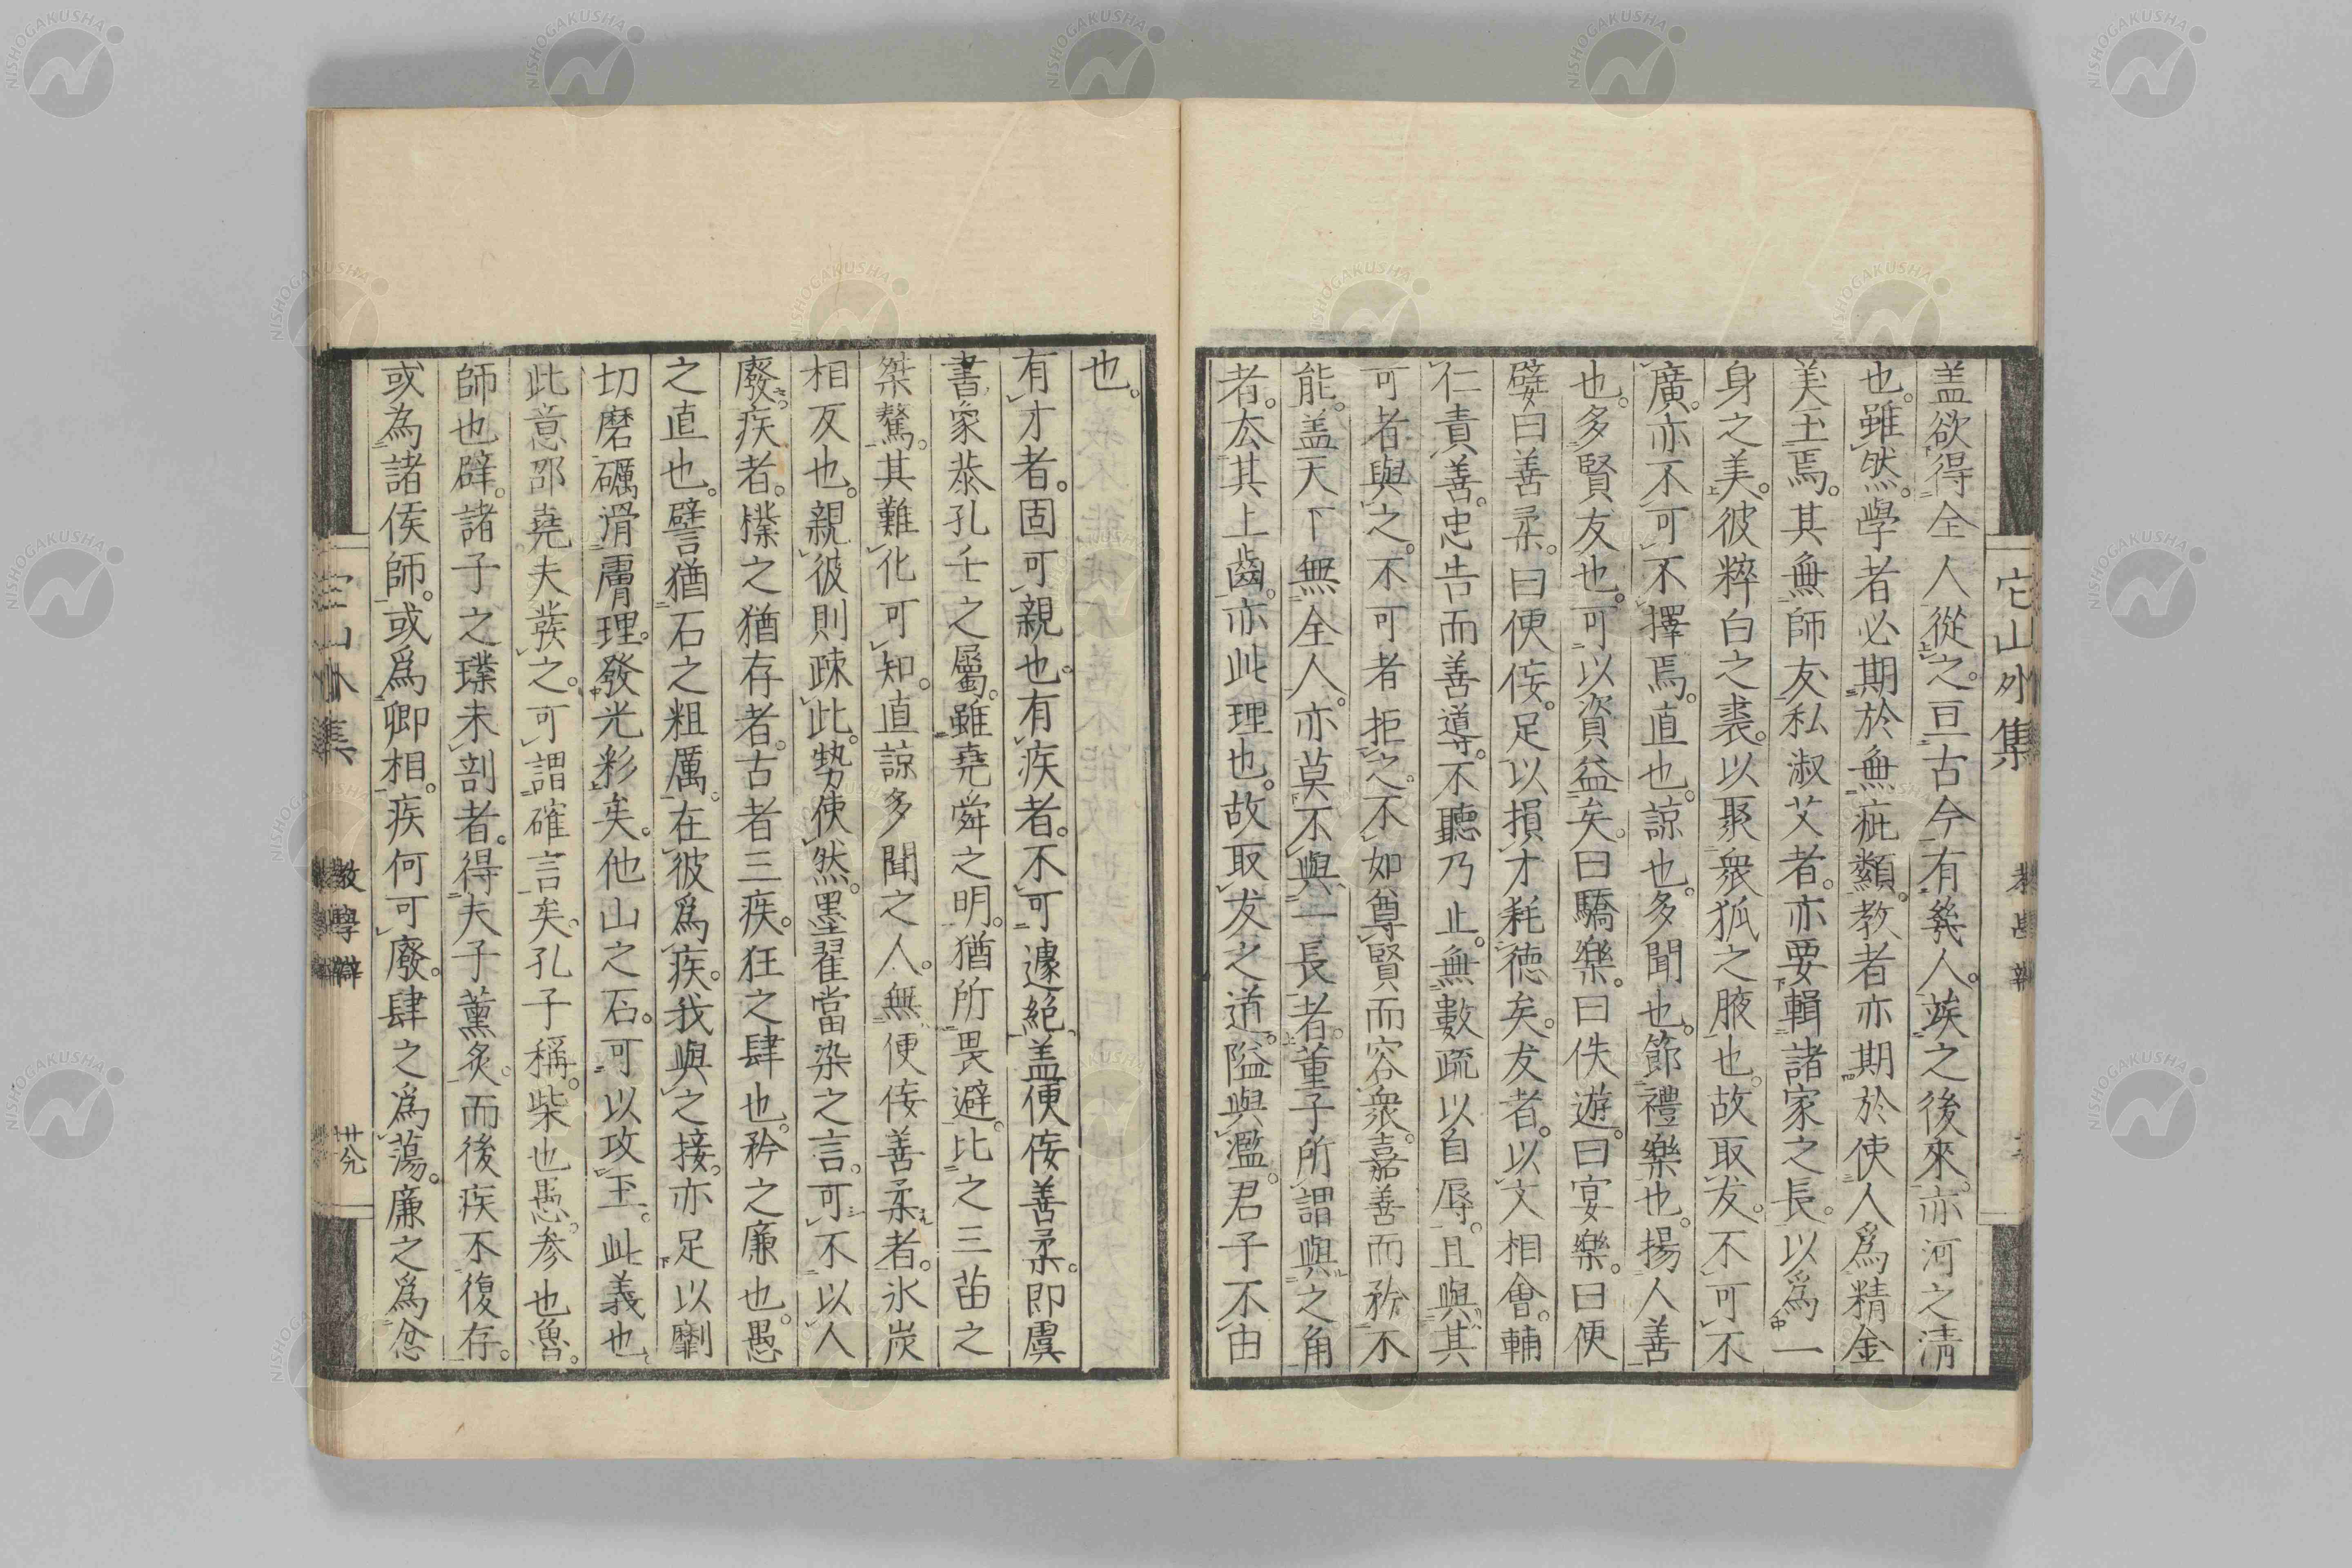 它山外集
盖欲得全人從之。亘古今有幾人。竢之後來。亦河之淸
也。雖然。學者必期於無疵纇。教者亦期於使人爲精金
美玉焉。其無師友私淑艾者。亦要輯諸家之長。以爲一
身之美。彼粹白之裘。以聚衆狐之腋也。故取友。不可不
廣。亦不可不擇焉。直也。諒也。多聞也。節禮樂也。揚人善
也。多賢友也。可以資益矣。曰驕樂。曰佚遊。曰宴樂。曰便
嬖曰善柔。曰便侫。足以損才耗徳矣。友者。以文相會。輔
仁責善。忠告而善導。不聽乃止。無數疏以自辱。且與其
可者與之。不可者拒之。不如尊賢而容衆。嘉善而矜不
能。盖天下無全人。亦莫不與一長者。董子所謂與之角
者。厺其上齒。亦此理也。故取友之道。隘與濫。君子不由
也。
有才者。固可親也。有疾者。不可遽絕。盖便侫善柔。即虞
書象恭孔壬之屬。雖堯舜之明。猶所畏避。比之三苗之
桀驁。其難化可知。直諒多聞之人。無便侫善柔者。氷炭
相反也。親彼則疎此。勢使然。墨翟當染之言。可不以人
廢疾者。檏之猶存者。古者三疾。狂之肆也。矜之廉也。愚
之直也。譬猶石之粗厲。在彼爲疾。我與之接。亦足以劘
切磨礪滑膚理。發光彩矣。他山之石。可以攻玉。此義也
此意邵堯夫發之。可謂確言矣。孔子稱。柴也愚。参也魯。
師也辟。諸子之璞未剖者。得夫子薰炙。而後疾不復存。
或為諸侯師。或爲卿相。疾何可廢。肆之爲蕩。廉之爲忿
它山外集
教學辯
NISHOGAKUSHA